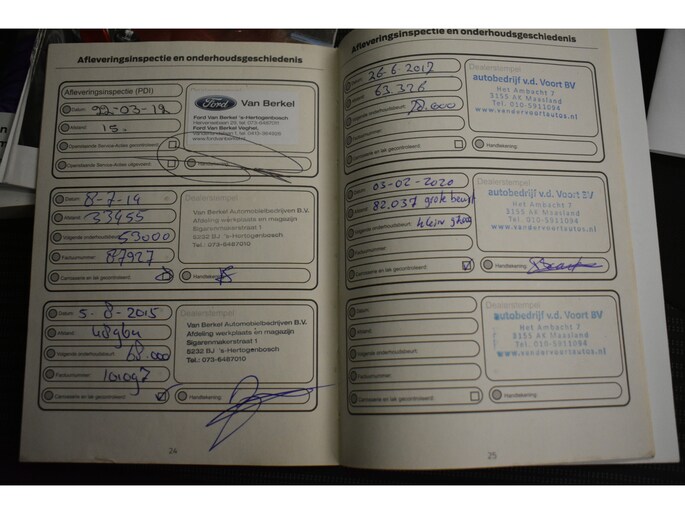 Afleveringsinspectie en onderhoudsgeschiedenis
Afleveringsinspectie (PDI)
Datum: 22-03-12
Afstand: 15.
Openstaande Service-Acties gecontroleerd:
Openstaande Service-Acties uitgevoerd:
Ford Van Berkel
Ford Van Berkel 's-Hertogenbosch
Ford Van Berkel Veghel,
Handtekening:
Datum: 8-7-14
Afstand: 33455
Volgende onderhoudsbeurt: 53000
Factuurnummer: 87927
Carrosserie en lak gecontroleerd:
Dealerstempel
Van Berkel Automobielbedrijven B.V.
Afdeling werkplaats en magazijn
Sigarenmakerstraat 1
5232 BJ 's-Hertogenbosch
Tel.: 073-6487010
Handtekening:
Datum: 5-8-2015
Afstand:
Volgende onderhoudsbeurt: 68.000
Factuurnummer: 101097
Carrosserie en lak gecontroleerd:
Dealerstempel
Van Berkel Automobielbedrijven B.V.
Afdeling werkplaats en magazijn
Sigarenmakerstraat 1
5232 BJ 's-Hertogenbosch
Tel.: 073-6487010
Handtekening:
24
Afleveringsinspectie en onderhoudsgeschiedenis
Datum: 26-6-2017
Afstand: 63.326
Volgende onderhoudsbeurt:
Factuurnummer:
Carrosserie en lak gecontroleerd:
Dealerstempel
autobedrijf v.d. Voort BV
Het Ambacht 7
3155 AK Maasland
Tel. 010-5911094
www.vandervoortautos.nl
Handtekening:
Datum: 03-02-2020
Afstand: 82.037 grote beurt
Volgende onderhoudsbeurt: klein
Factuurnummer:
Carrosserie en lak gecontroleerd:
Dealerstempel
autobedrijf v.d. Voort BV
Het Ambacht 7
3155 AK Maasland
Tel. 010-5911094
www.vandervoortautos.nl
Handtekening:
Datum:
Afstand:
Volgende onderhoudsbeurt:
Factuurnummer:
Carrosserie en lak gecontroleerd:
Dealerstempel
autobedrijf v.d. Voort BV
Het Ambacht 7
3155 AK Maasland
Tel. 010-5911094
www.vandervoortautos.nl
Handtekening:
25